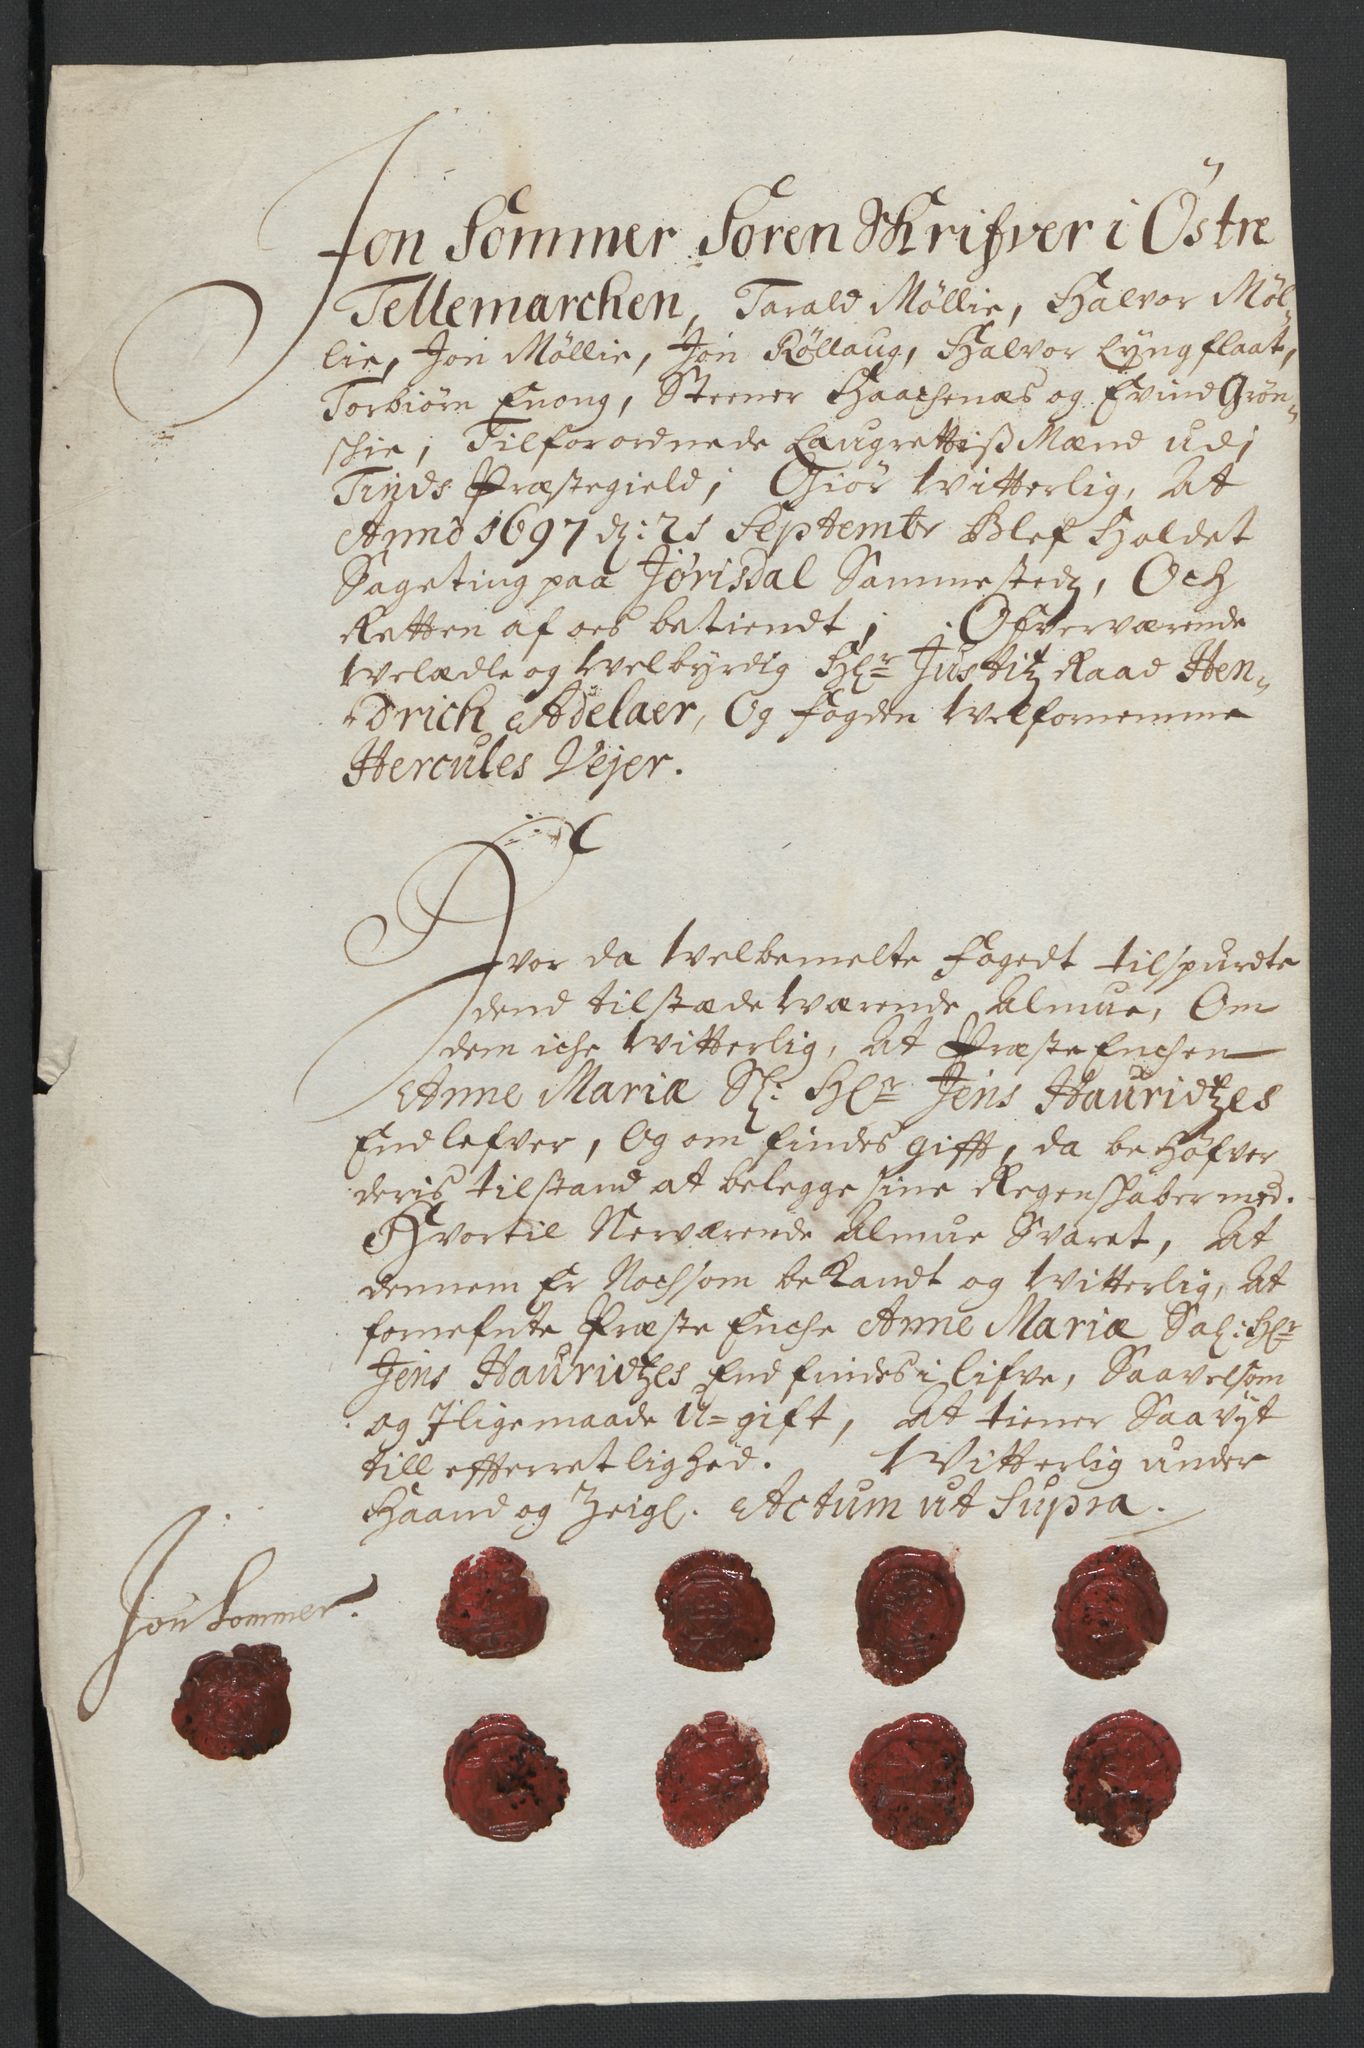 Jon Sommer Soren Skrifver i Östre
Tellemarchen, Tarald Möllie, Halvor Möl-
lie, Jon Möllie, Jon Röllaug, Halvor Lyngflaat,
Torbiörn Enong, Steener Haachenæs og Evind Grön-
schie, Tilforordnede Laugrettiß Mænd udi
Tinds Præstegield; Giör Witterlig, At
Anno 1697 d: 21 Septembr Blef Holdet
Sageting paa Jörisdal Sammestedz, Och
Retten af os betiendt; Ofverværende
Welædle og Welbyrdig Hr Justitz Raad Hen-
drich Adelaer, Og Fogden Welfornemme
Hercules Vejer.
Hvor da Welbemelte Fogedt tilspurdte
dend tilstædeværende Almue, Om
dem iche Witterlig, At Præste Enchen
Anne Mariæ Sl: Hr Jens Hauridtzes
End lefver, Og om findes gifft, da behöfver
deris tilstand at belegge sine Regenskaber med.
Hvortil Nerværende Almue Svaret, At
dennem Er Nochsom bekandt og Witterlig, At
fornefnte Præste Enche Anne Mariæ Sal: Hr
Jens Hauridtzes End findes i lifve, Saavelsom
og Iligemaade U=gift, At tiener Saavyt
till effterretlighed. Witterlig under
Haand og Zeigl. Actum ut Supra.
Jon Sommer.